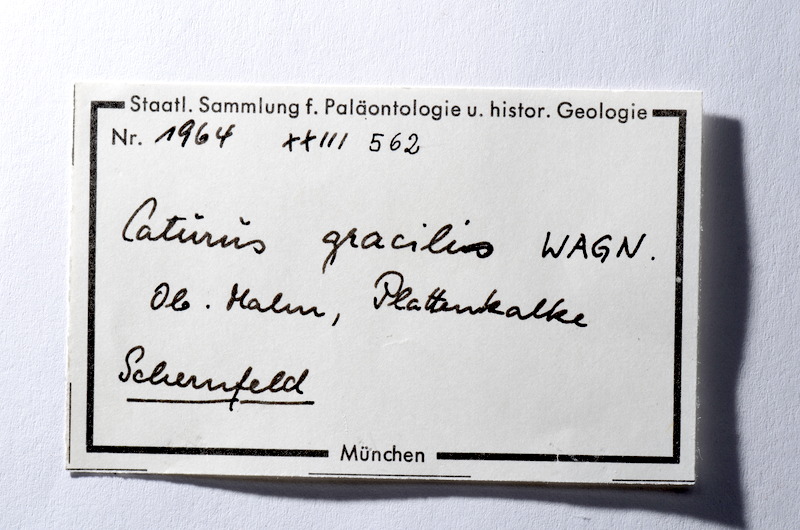 Staatl. Sammlung f. Paläontologie u. histor. Geologie
Nr. 1964 XXIII 562
Caturus gracilis WAGN.
Ob. Malm, Plattenkalke
Schernfeld
München